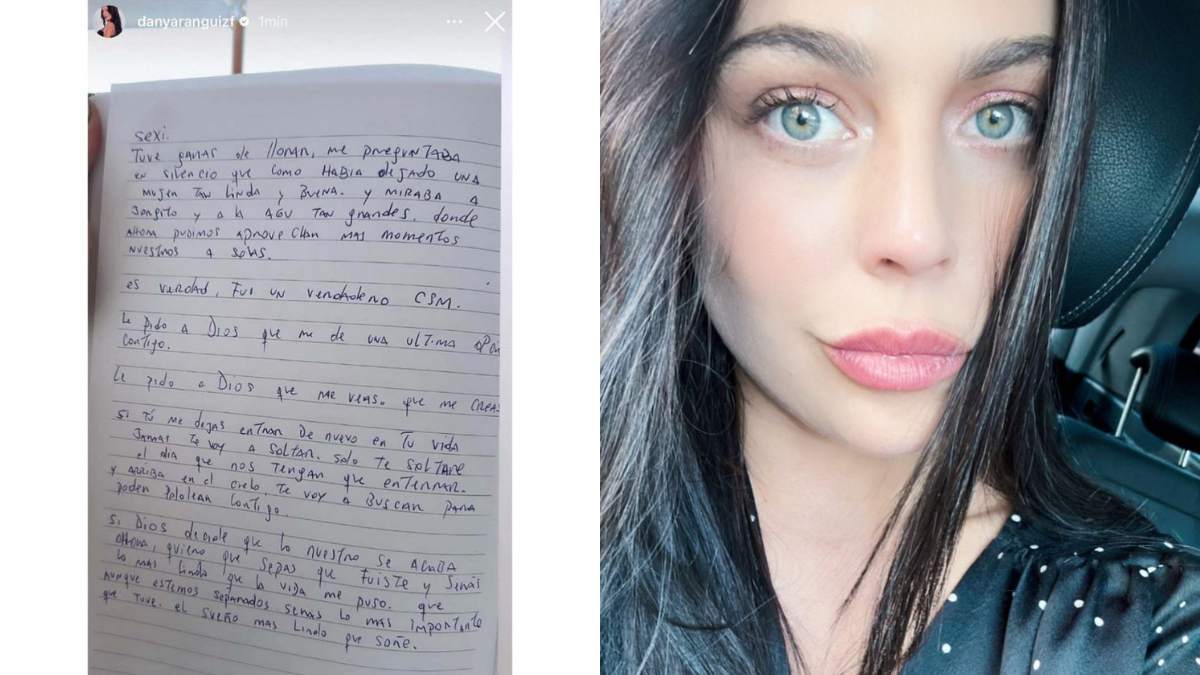 danyaranguizf 1min
sexi.
Tuve ganas de llorar, me preguntaba
en silencio que como había dejado una
mujer tan linda y buena. y miraba a
Jorgito y a la Agu tan grandes. donde
ahora pudimos aprovechar mas momentos
nuestros a solas.
es verdad, fui un verdadero CSM.
Le pido a Dios que me de una ultima
contigo.
Le pido a Dios que me veas. que me creas
si tú me dejas entrar de nuevo en tu vida
jamas te voy a soltar. solo te soltare
el día que nos tengan que enterrar.
y arriba en el cielo, te voy a buscar para
poder pololear contigo.
si Dios decide que lo nuestro se acaba
ahora, quiero que sepas que fuiste y serás
lo mas lindo que la vida me puso. que
aunque estemos separados seras lo mas importante
que tuve. el sueño mas lindo que soñe.